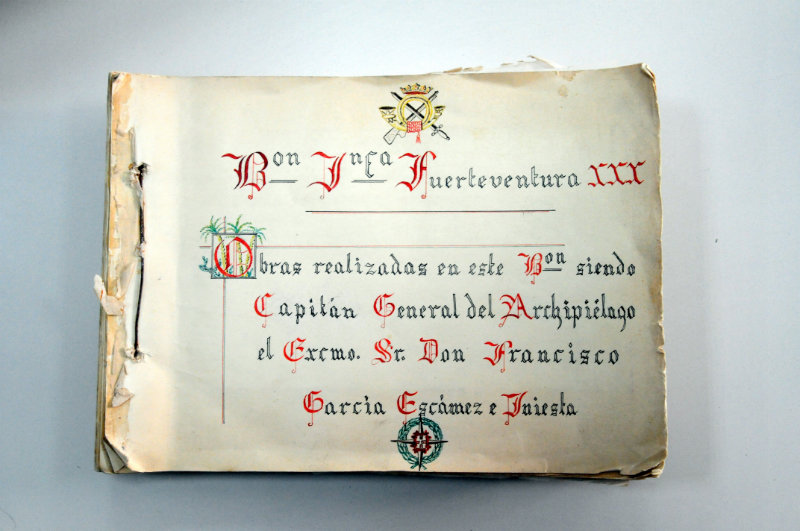 Bon Infa Fuerteventura XXX
Obras realizadas en este Bon siendo
Capitán General del Archipiélago
el Excmo. Sr. Don Francisco
García Escámez e Iniesta